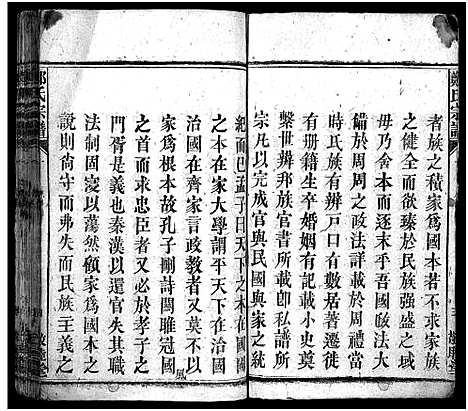 者族之積家爲國本若不求家族
之健全而欲臻於民族強盛之域
毋乃舍本而逐末乎吾國政法大
備於周周之政法詳載於周禮當
時氏族有辨戶口有數居著有圖
有册籍生卒婚姻有記載小史奠
繫世辨邦族官書所載即私譜所
宗凡以完成官與民國與家之統
紀而已孟子曰天下之本在國國
之本在家大學謂平天下在治國
治國在齊家言政教者又莫不以
家爲根本故孔子刪詩關雎冠國風
之首而求忠臣者又必於孝子之
門胥是義也秦漢以還官失其職
法制固寖以蕩然顧家爲國本之
說則尙守而弗失而民族主義之
鄭氏宗譜